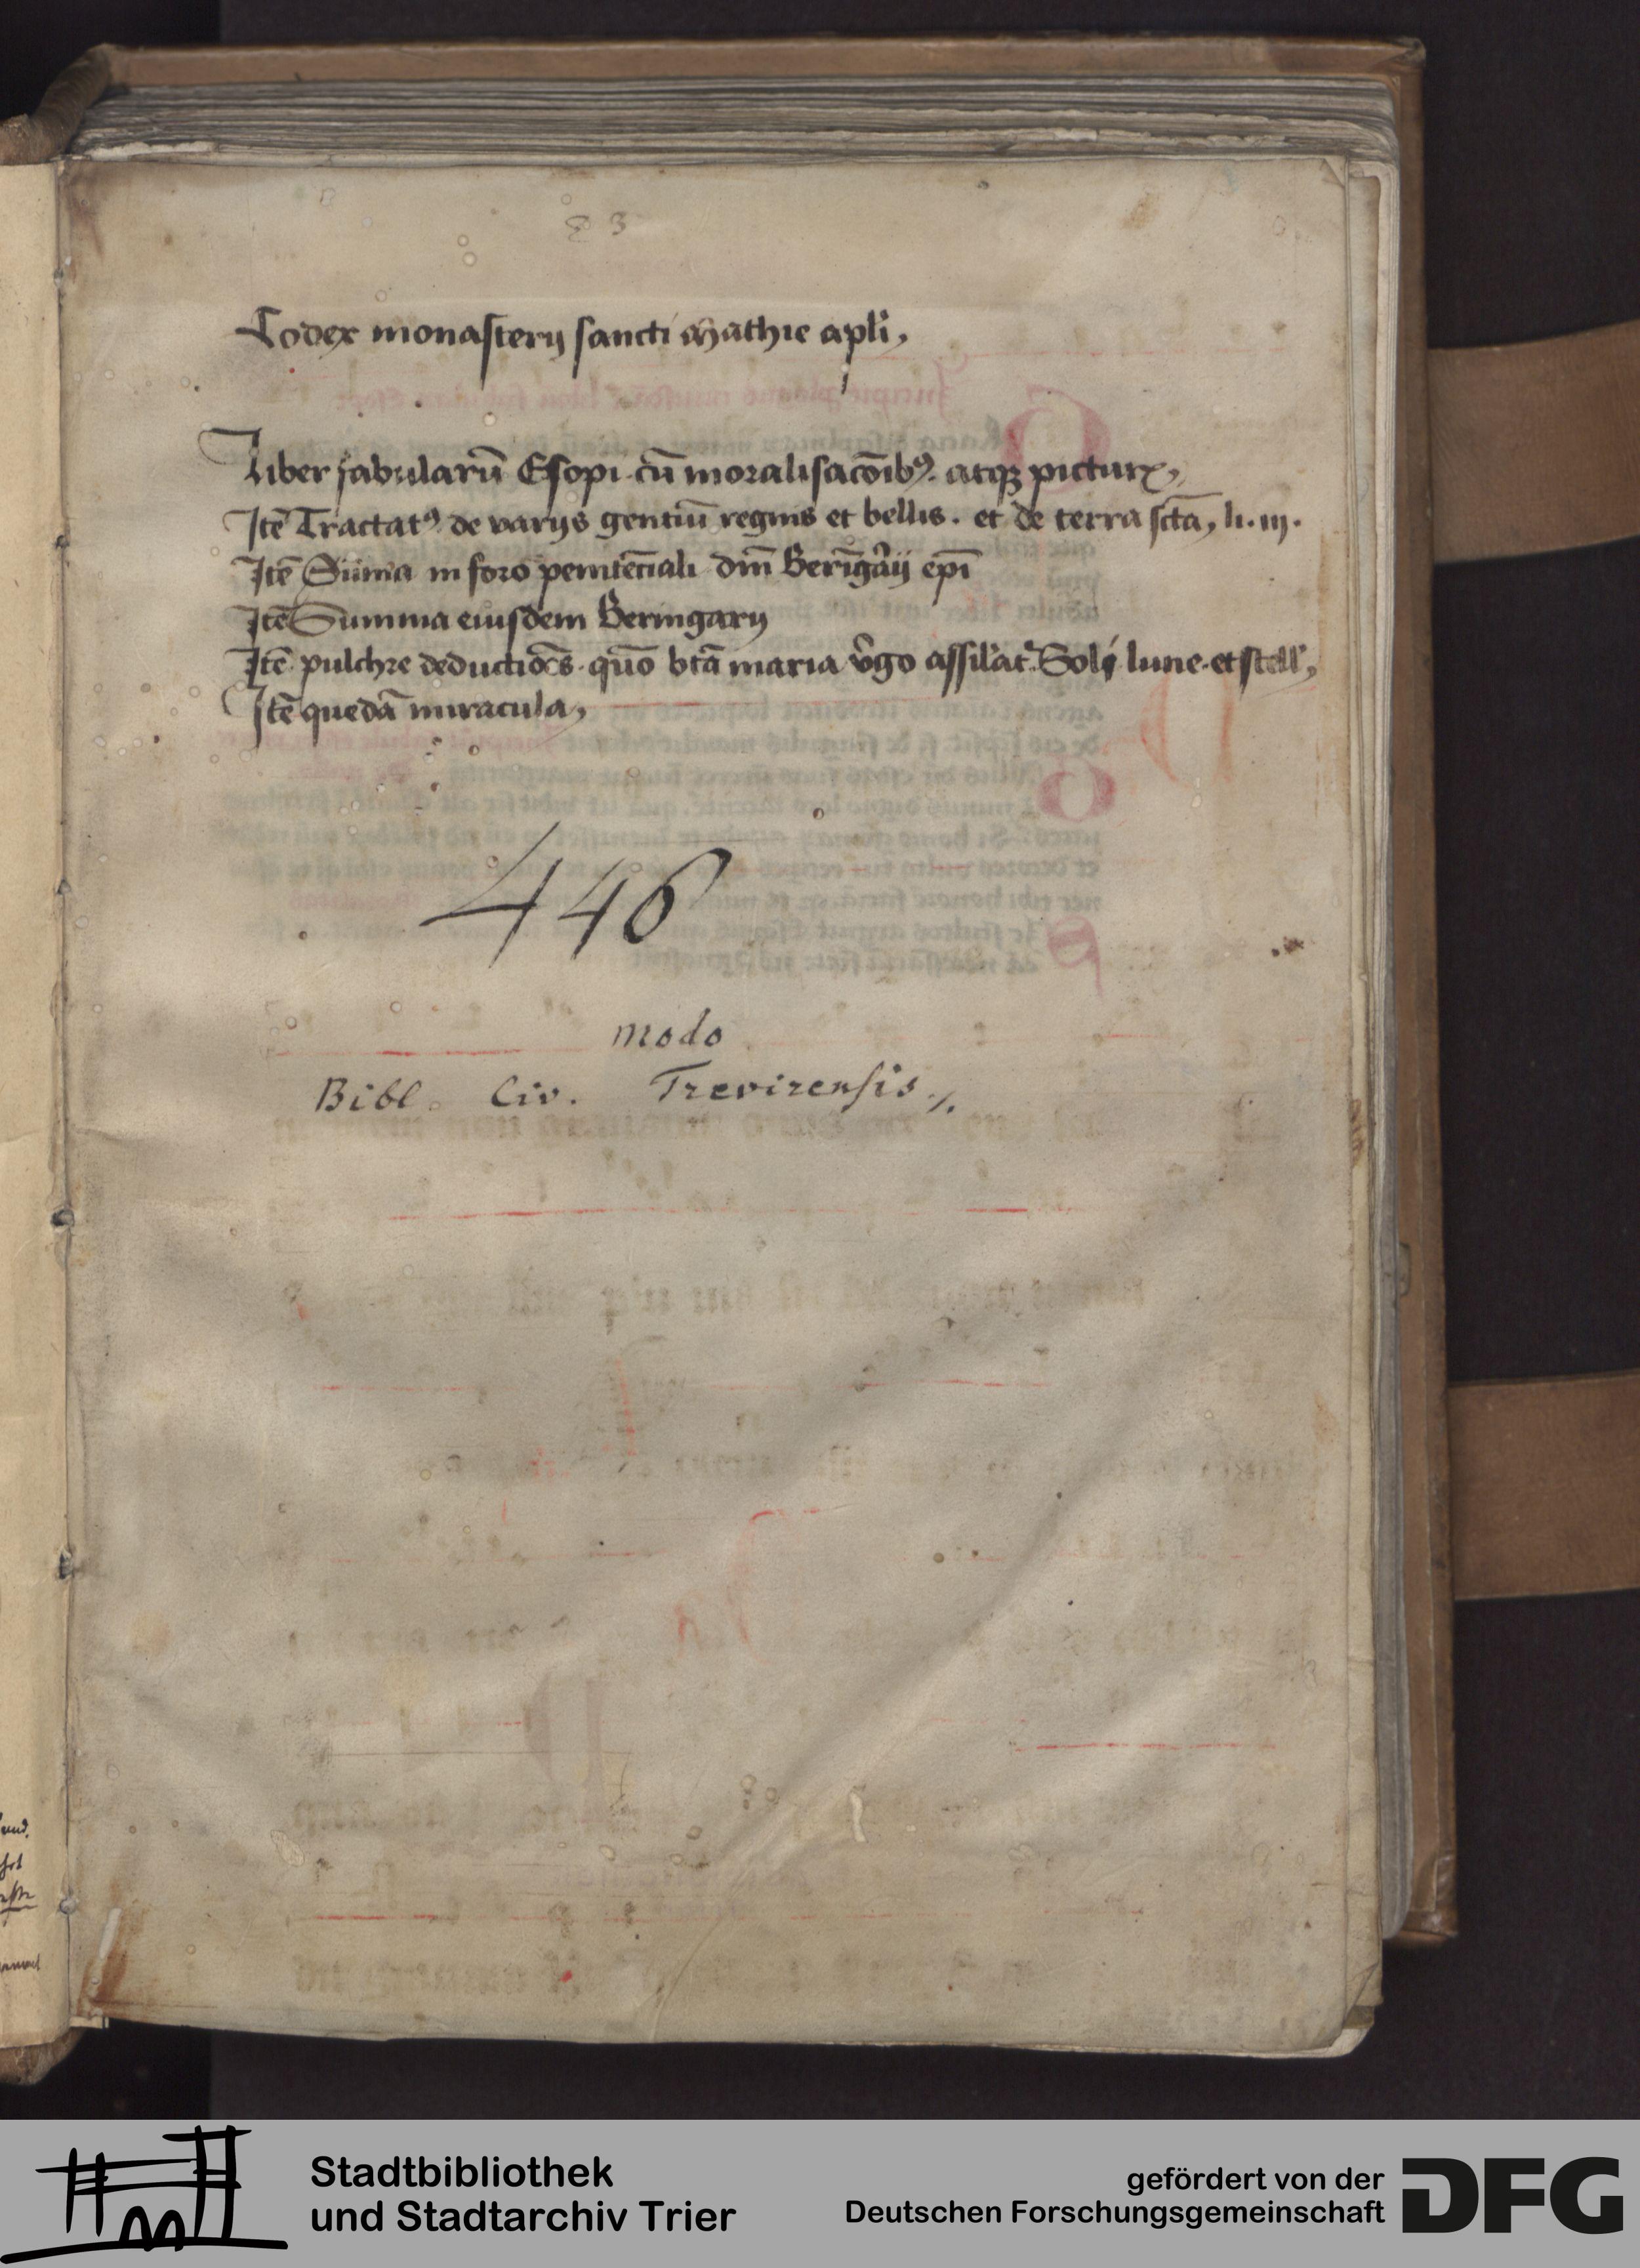 Codex monasterij sancti Mathie apli,
Liber fabularū Esopi. cū moralisacōibꝰ. atqꝫ pictur,
Itē Tractatꝰ de varijs gentiū regnis et bellis. et de terra sctā, li. iij.
Itē Sūma in foro penitēciali dm̄ Berīgarij epī
Itē Summa eiusdem Beringarij
Itē pulchre deductiōes. quō btā maria v̄go assilatʳ Soli lune. et stell,
Itē quedā miracula,
446
modo
Bibl. Civ. Trevirensis.
Stadtbibliothek
und Stadtarchiv Trier
gefördert von der
Deutschen Forschungsgemeinschaft
DFG